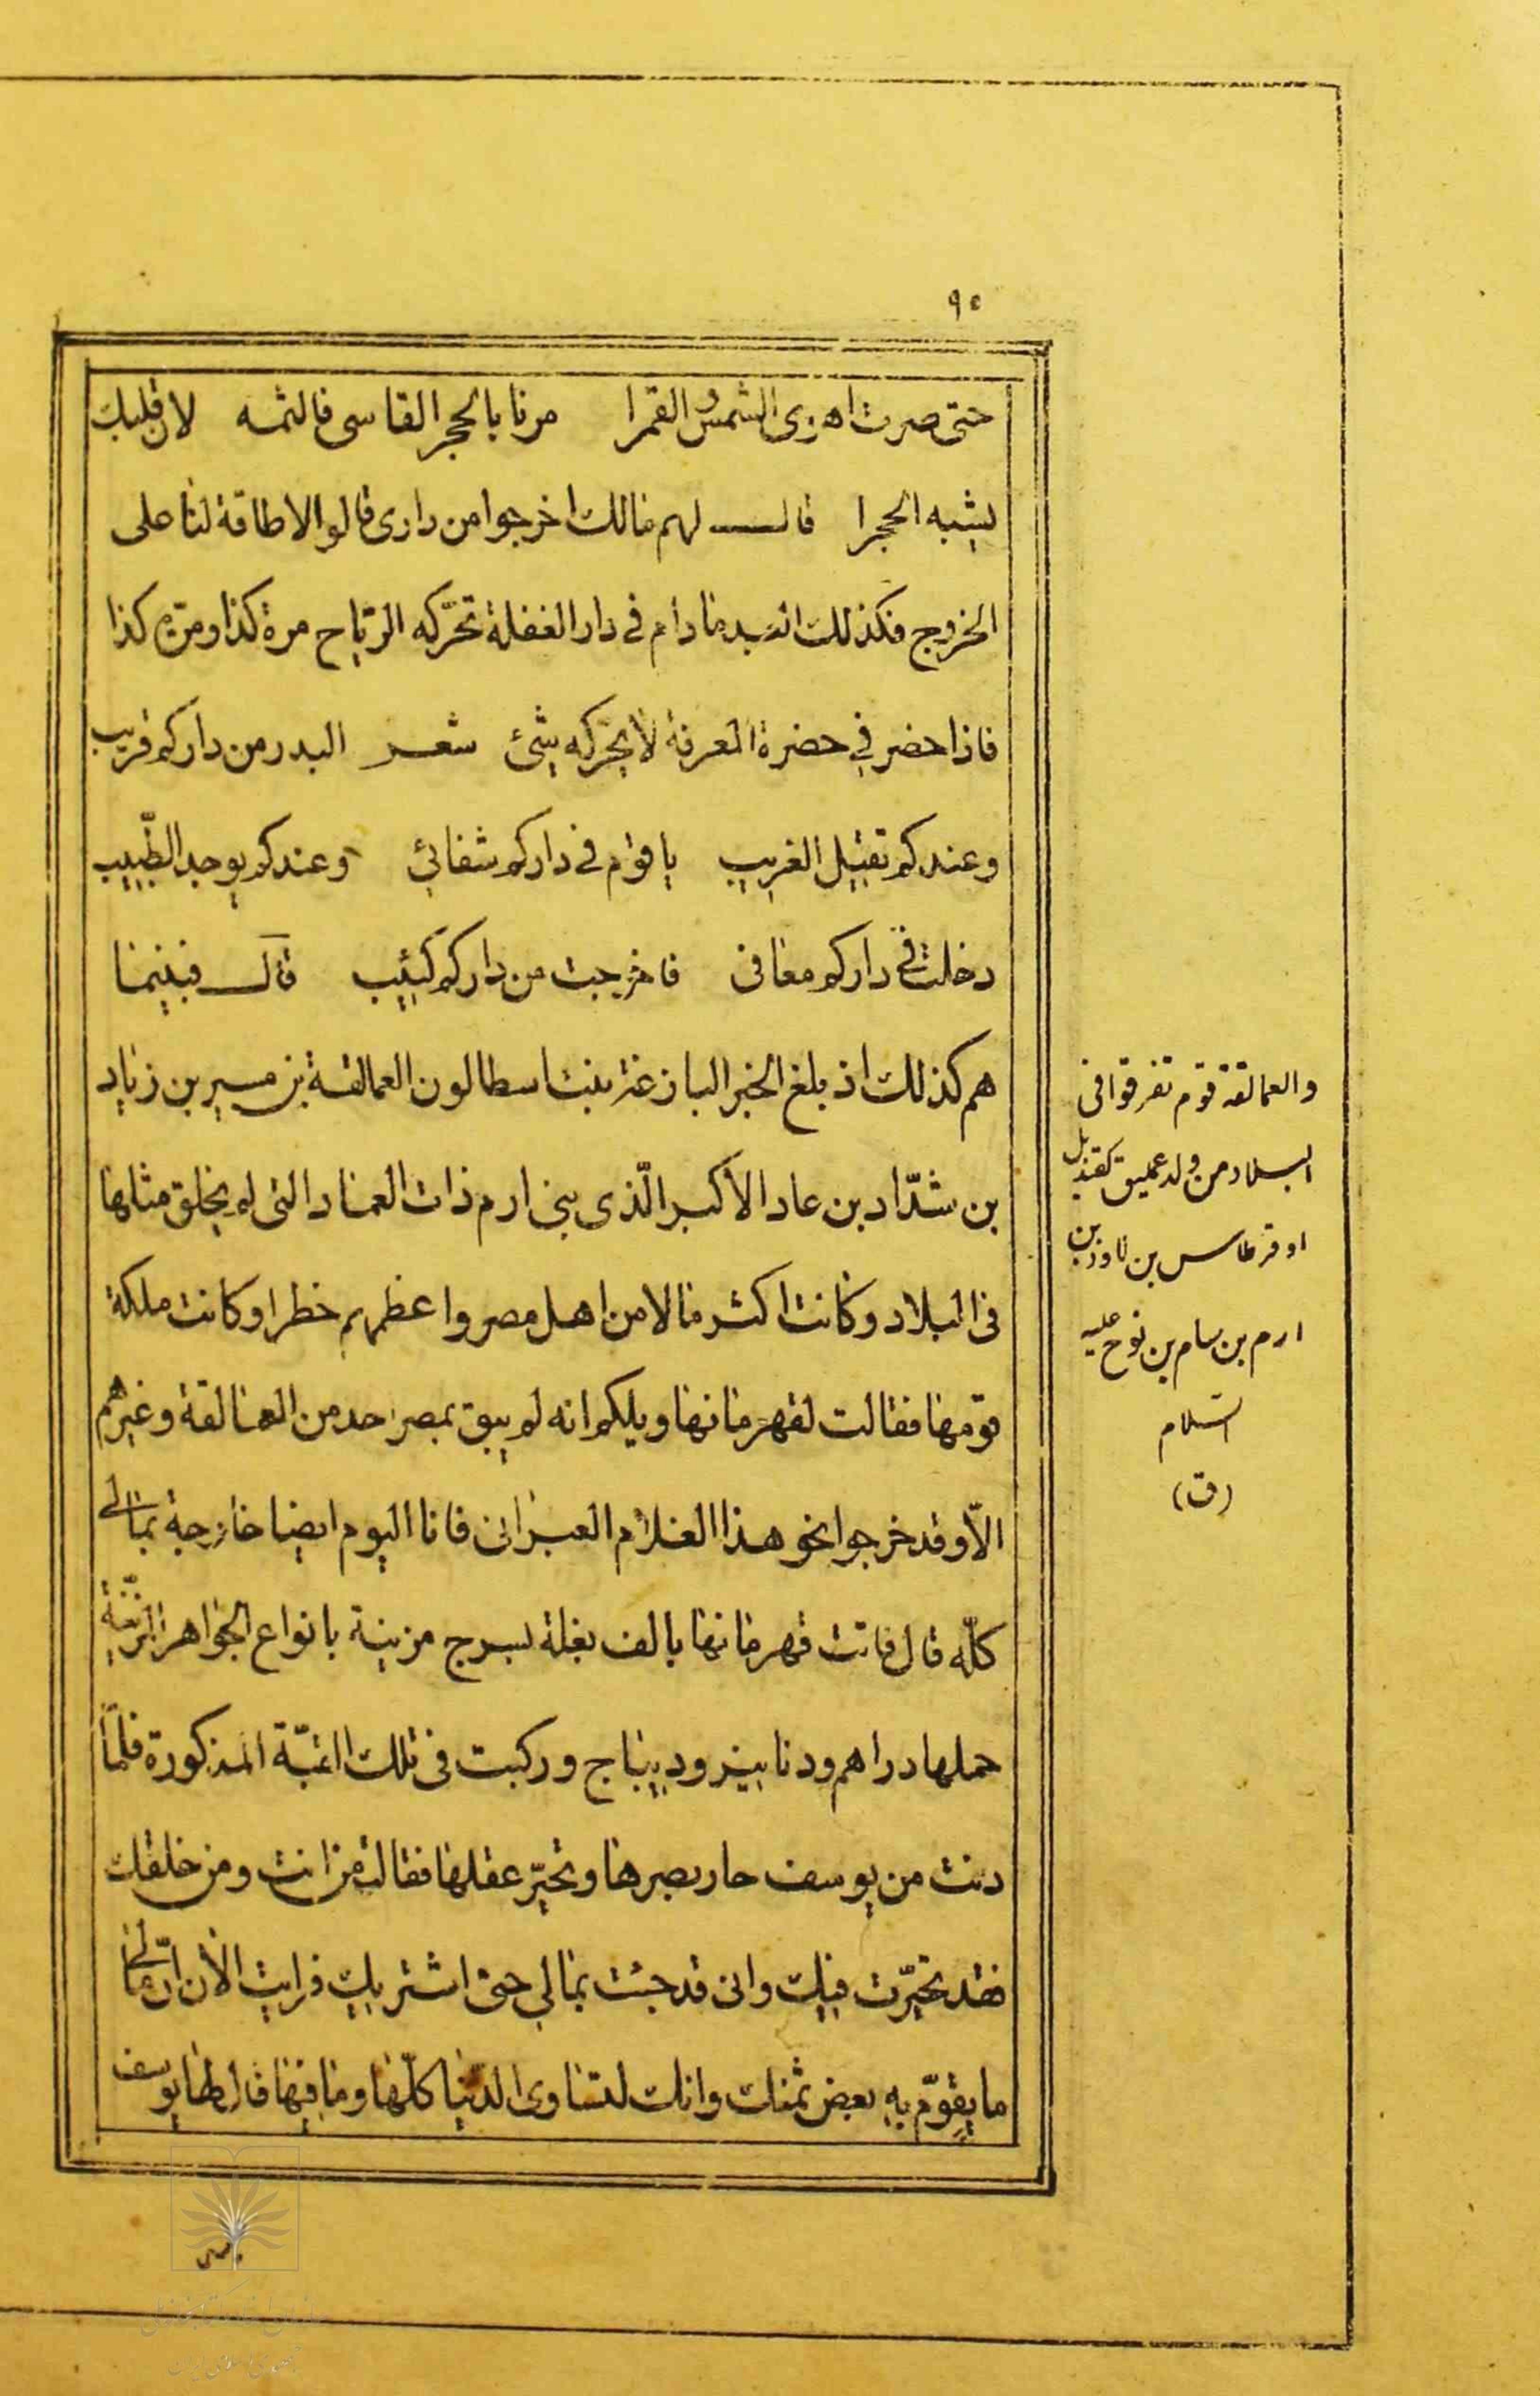 ٩٥
حتى صرت اهزى الشمس و القمرا مرنا بالحجر القاسى فالثمه لان قلبك
يشبه الحجرا قال لهم مالك اخرجوا من دارى قالوا لا طاقة لنا على
الخروج فكذلك العبد ما دام فى دار الغفلة تحرّكه الرّياح مرة كذا ومرّة كذا
فاذا حضر في حضرة المعرفة لا يحرّكه شئ شعر البدر من داركم قريب
وعندكم تقبيل الغريب يا قوم فى داركم شفائي وعندكم يوجد الطّبيب
دخلت فى داركم معافى فاخرجت من داركم كئيب قال فبينما
هم كذلك اذ بلغ الخبر البازغة بنت اسطالون العمالقة بن مسير بن زياد
بن شدّاد بن عاد الأكبر الّذى بنى ارم ذات العماد التى لم يخلق مثلها
فى البلاد وكانت اكثر مالا من اهل مصر واعظمهم خطرا وكانت ملكة
قومها فقالت لقهرمانها ويلكم انه لم يبق بمصر احد من العمالقة وغيرهم
الاّ وقد خرجوا نحو هذا الغلام العبرانى فانا اليوم ايضا خارجة بمالى
كلّه قال فاتت قهرمانها بالف بغلة بسرج مزينة بانواع الجواهر
حملها دراهم ودنانير وديباج وركبت فى تلك القبّة المذكورة فلمّا
دنت من يوسف حار بصرها وتحيّر عقلها فقالت من انت ومن خلقك
فقد تحيّرت فيك وانى قد جئت بمالي حتى اشتريك فرايت الأن انّ مالى
ما يقوّم به بعض ثمنك وانك لتساوى الدّنيا كلّها وما فيها قال لها يوسف
والعمالقة قوم تفرقوا فى
البلاد من ولد عمليق كقنديل
او قرطاس بن لاوذ بن
ارم بن سام بن نوح عليه
السّلام
(ق)